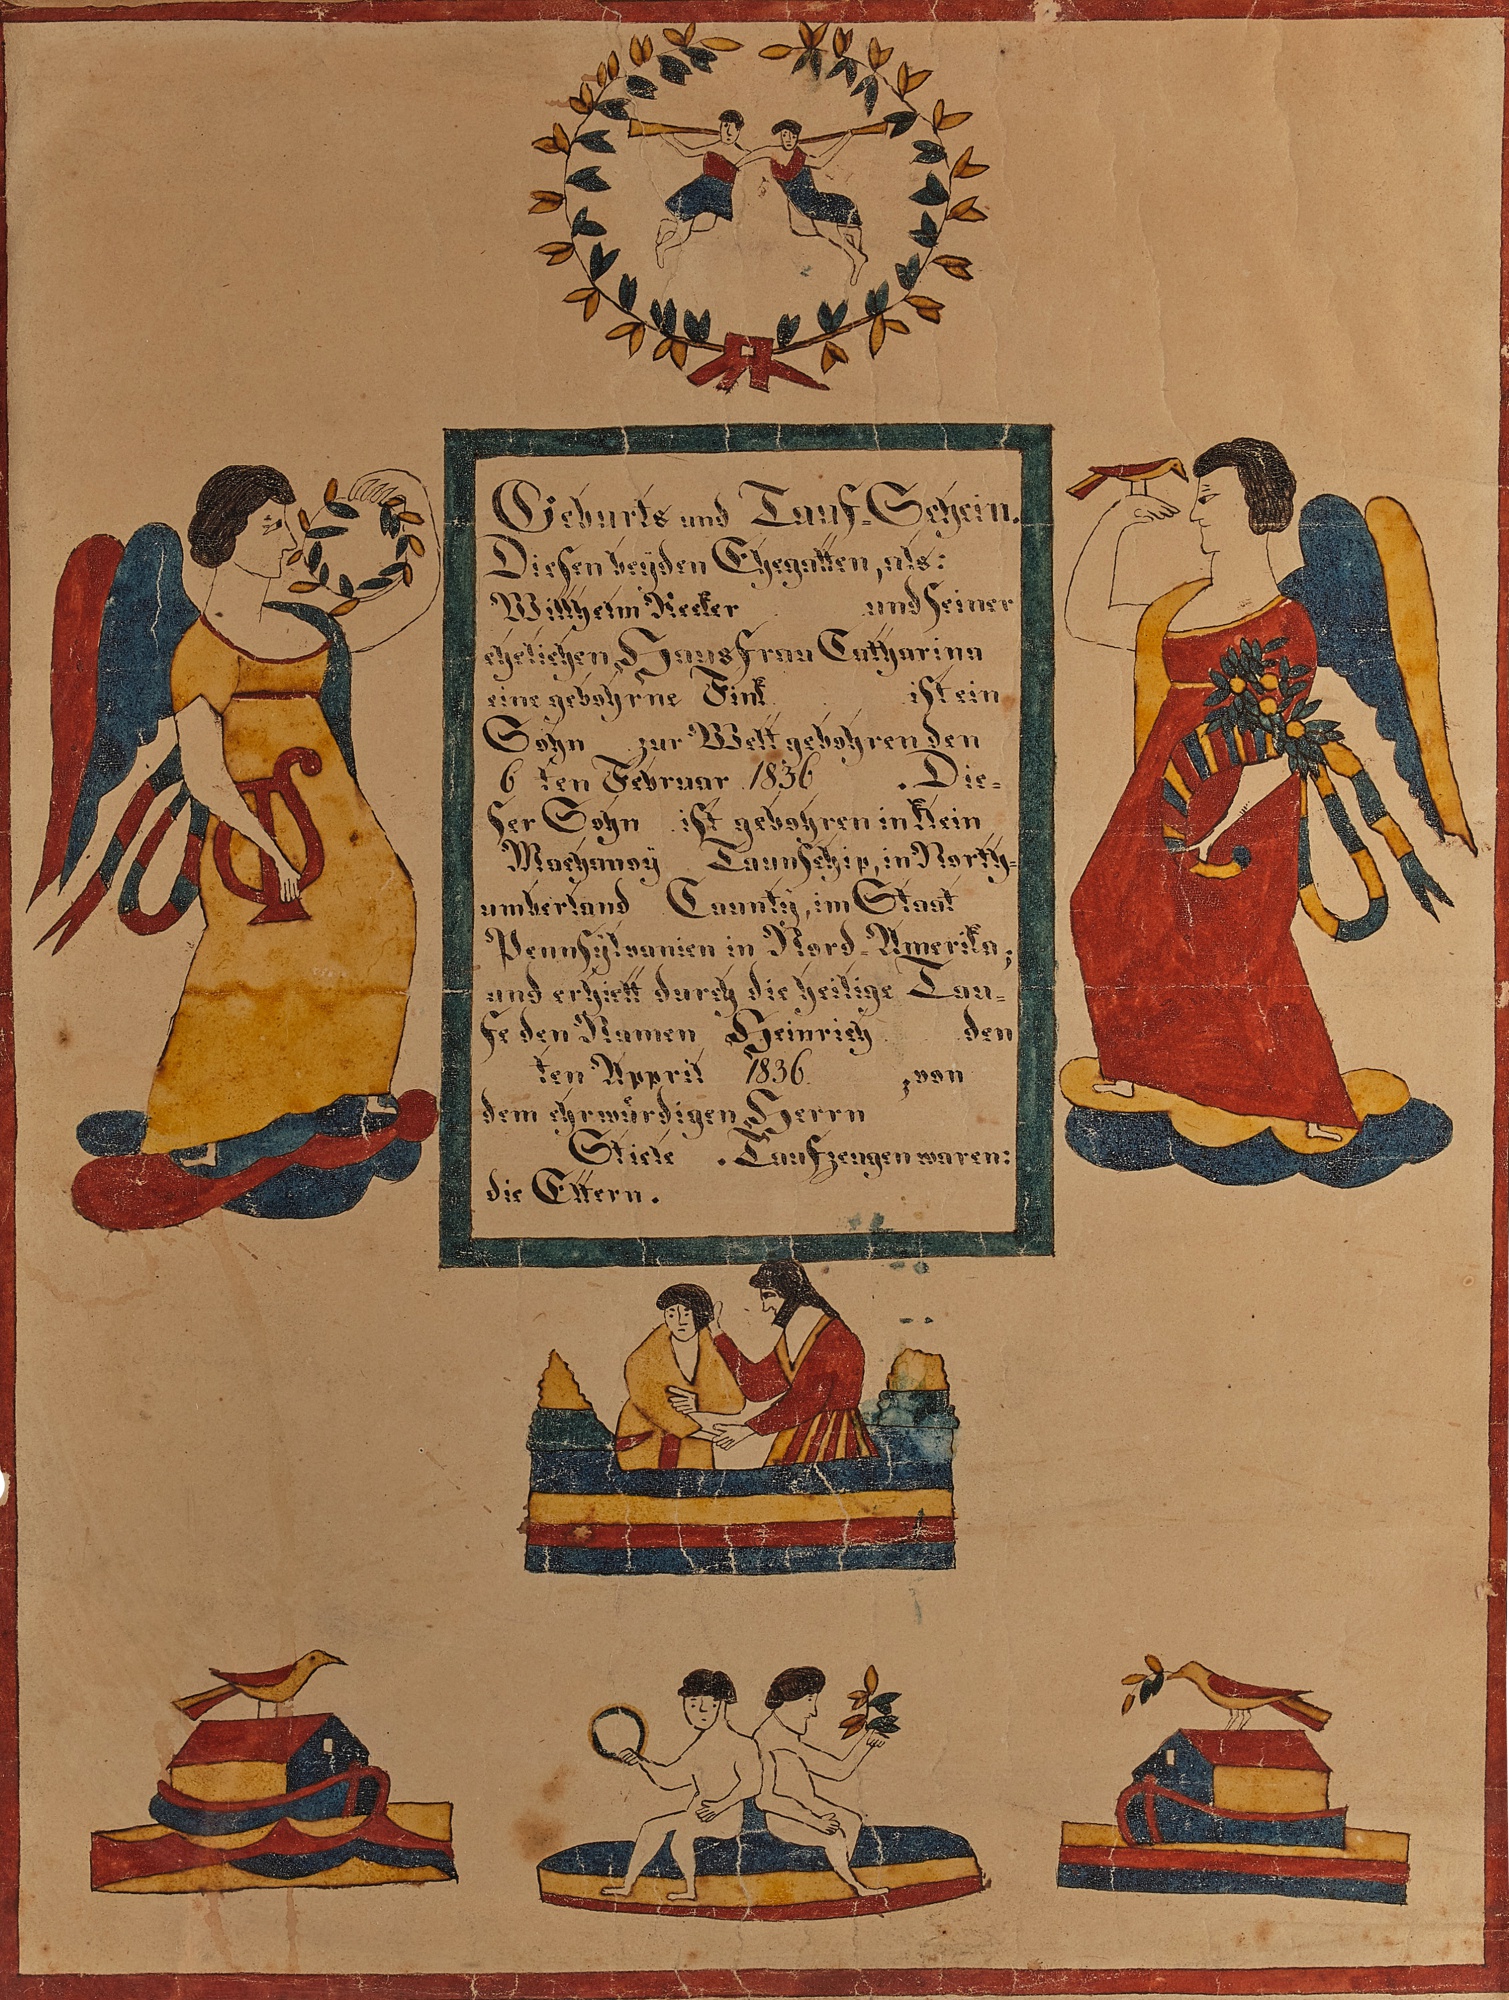 Geburts und Tauf-Schein.
Diesen beÿden Ehegatten, als:
Willhelm Recker und seiner
ehelichen Hausfrau Catharina
eine gebohrne Fink ist ein
Sohn zur Welt gebohren den
6 ten Februar 1836 . Die-
ser Sohn ist gebohren in Klein
Machanoÿ Taunschip, in North-
umberland Caunty, im Staat
Pennsylvanien in Nord-Amerika;
und erhielt durch die heilige Tau-
fe den Namen Heinrich den
ten Appril 1836 , von
dem ehrwürdigen Herrn
. Taufzeugen waren:
die Eltern.